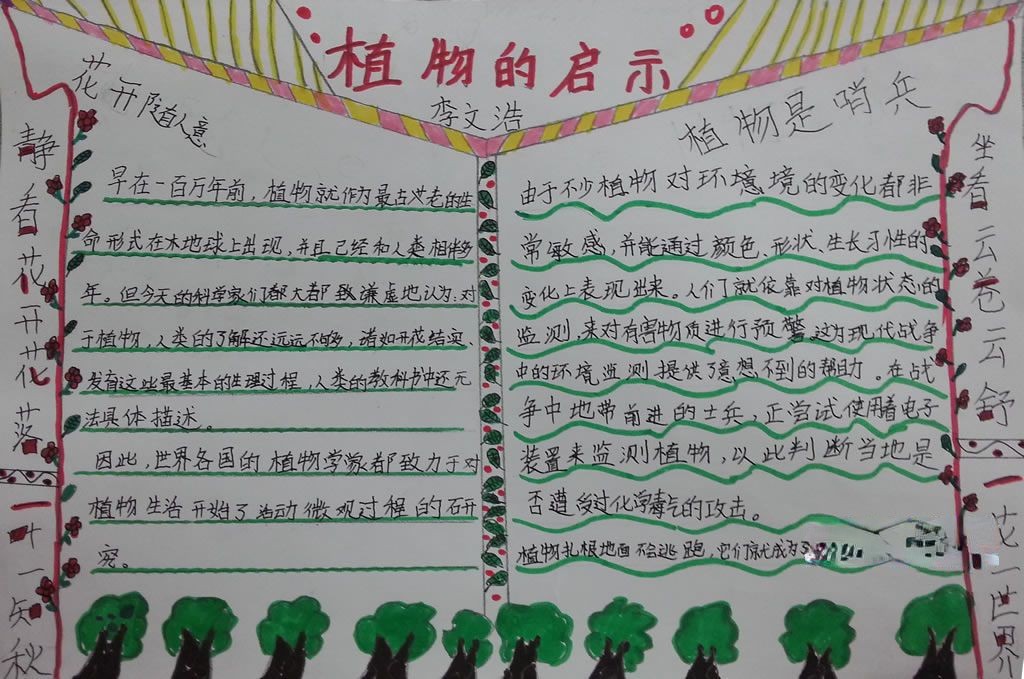 植物的启示
李文浩
花开随人意
早在一百万年前,植物就作为最古老的生
命形式在木地球上出现,并且已经和人类相伴多
年。但今天的科学家们都大都致谦虚地认为:对
于植物,人类的了解还远远不够多,诸如开花结实、
发育这些最基本的生理过程,人类的教科书中还无
法具体描述。
因此,世界各国的植物学家都致力于对
植物生活开始了活动微观过程的研
究。
植物是哨兵
由于不少植物对环境境的变化都非
常敏感,并能通过颜色、形状、生长习性的
变化上表现出来。人们了就依靠对植物状态的
监测,来对有害物质进行预警,这为现代战争
中的环境监测提供了意想不到的帮助。在战
争中地带前进的士兵,正尝试使用着电子
装置来监测植物,以此判断当地是
否遭受过化学毒气的攻击。
植物扎根地面不会逃跑,它们就成为了
静看花开花落
一叶一知秋
坐看云卷云舒
一花一世界